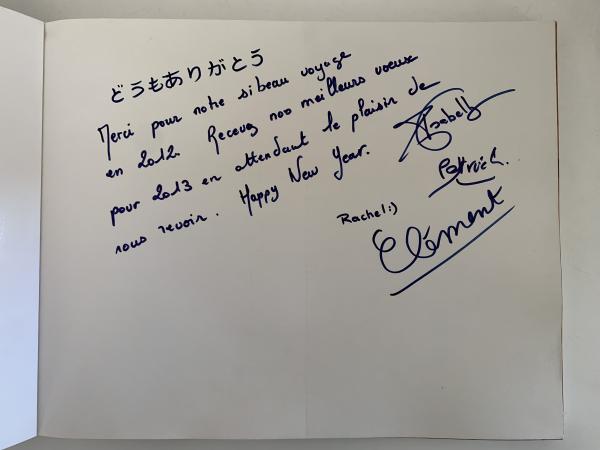 どうもありがとう
Merci pour notre si beau voyage
en 2012. Recevez nos meilleurs voeux
pour 2013 en attendant le plaisir de
nous revoir. Happy New Year.
Isabelle
Patrick.
Rachel :)
Clément